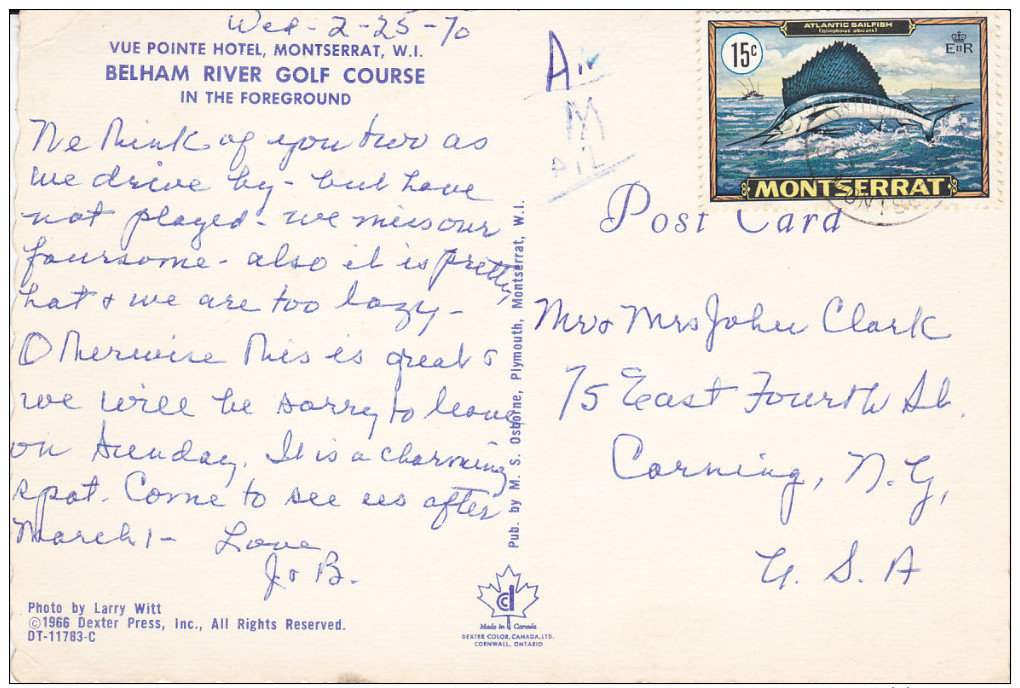 Wed - 2-25-70
VUE POINTE HOTEL, MONTSERRAT, W.I.
BELHAM RIVER GOLF COURSE
IN THE FOREGROUND
We think of you two as
we drive by - but have
not played - we miss our
foursome - also it is pretty
hot & we are too lazy -
Otherwise this is great &
we will be sorry to leave
on Sunday. It is a charming
spot. Come to see us after
March 1 - Love
J. & B.
Photo by Larry Witt
©1966 Dexter Press, Inc., All Rights Reserved.
DT-11783-C
Pub. by M. S. Osborne, Plymouth, Montserrat, W.I.
Made in Canada
DEXTER COLOR, CANADA, LTD.
CORNWALL, ONTARIO
Air
M
AIL
ATLANTIC SAILFISH
15c
E II R
MONTSERRAT
Post Card
Mr & Mrs John Clark
75 East Fourth St.
Corning, N.Y,
U. S. A